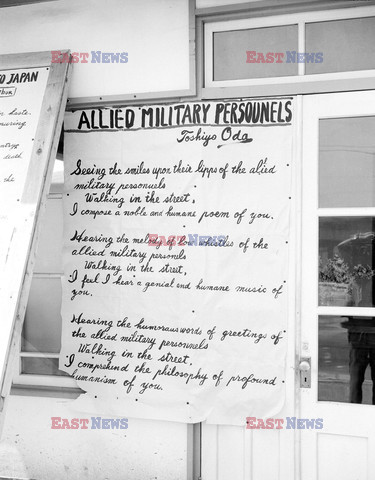 EAST NEWS
EAST NEWS
O JAPAN
ALLIED MILITARY PERSOUNELS
Toshiyo Oda
Seeing the smiles upon their lipps of the alied
military persounels
Walking in the street,
I compose a noble and humane poem of you.
Hearing the melody of low whistles of the
allied military persounels
Walking in the street,
I feel I hear a genial and humane music of
you.
Hearing the humoraus words of greetings of
the allied military persounnels
Walking in the street,
I comprehend the philosophy of profound
humanism of you.
EAST NEWS
EAST NEWS
EAST NEWS
EAST NEWS